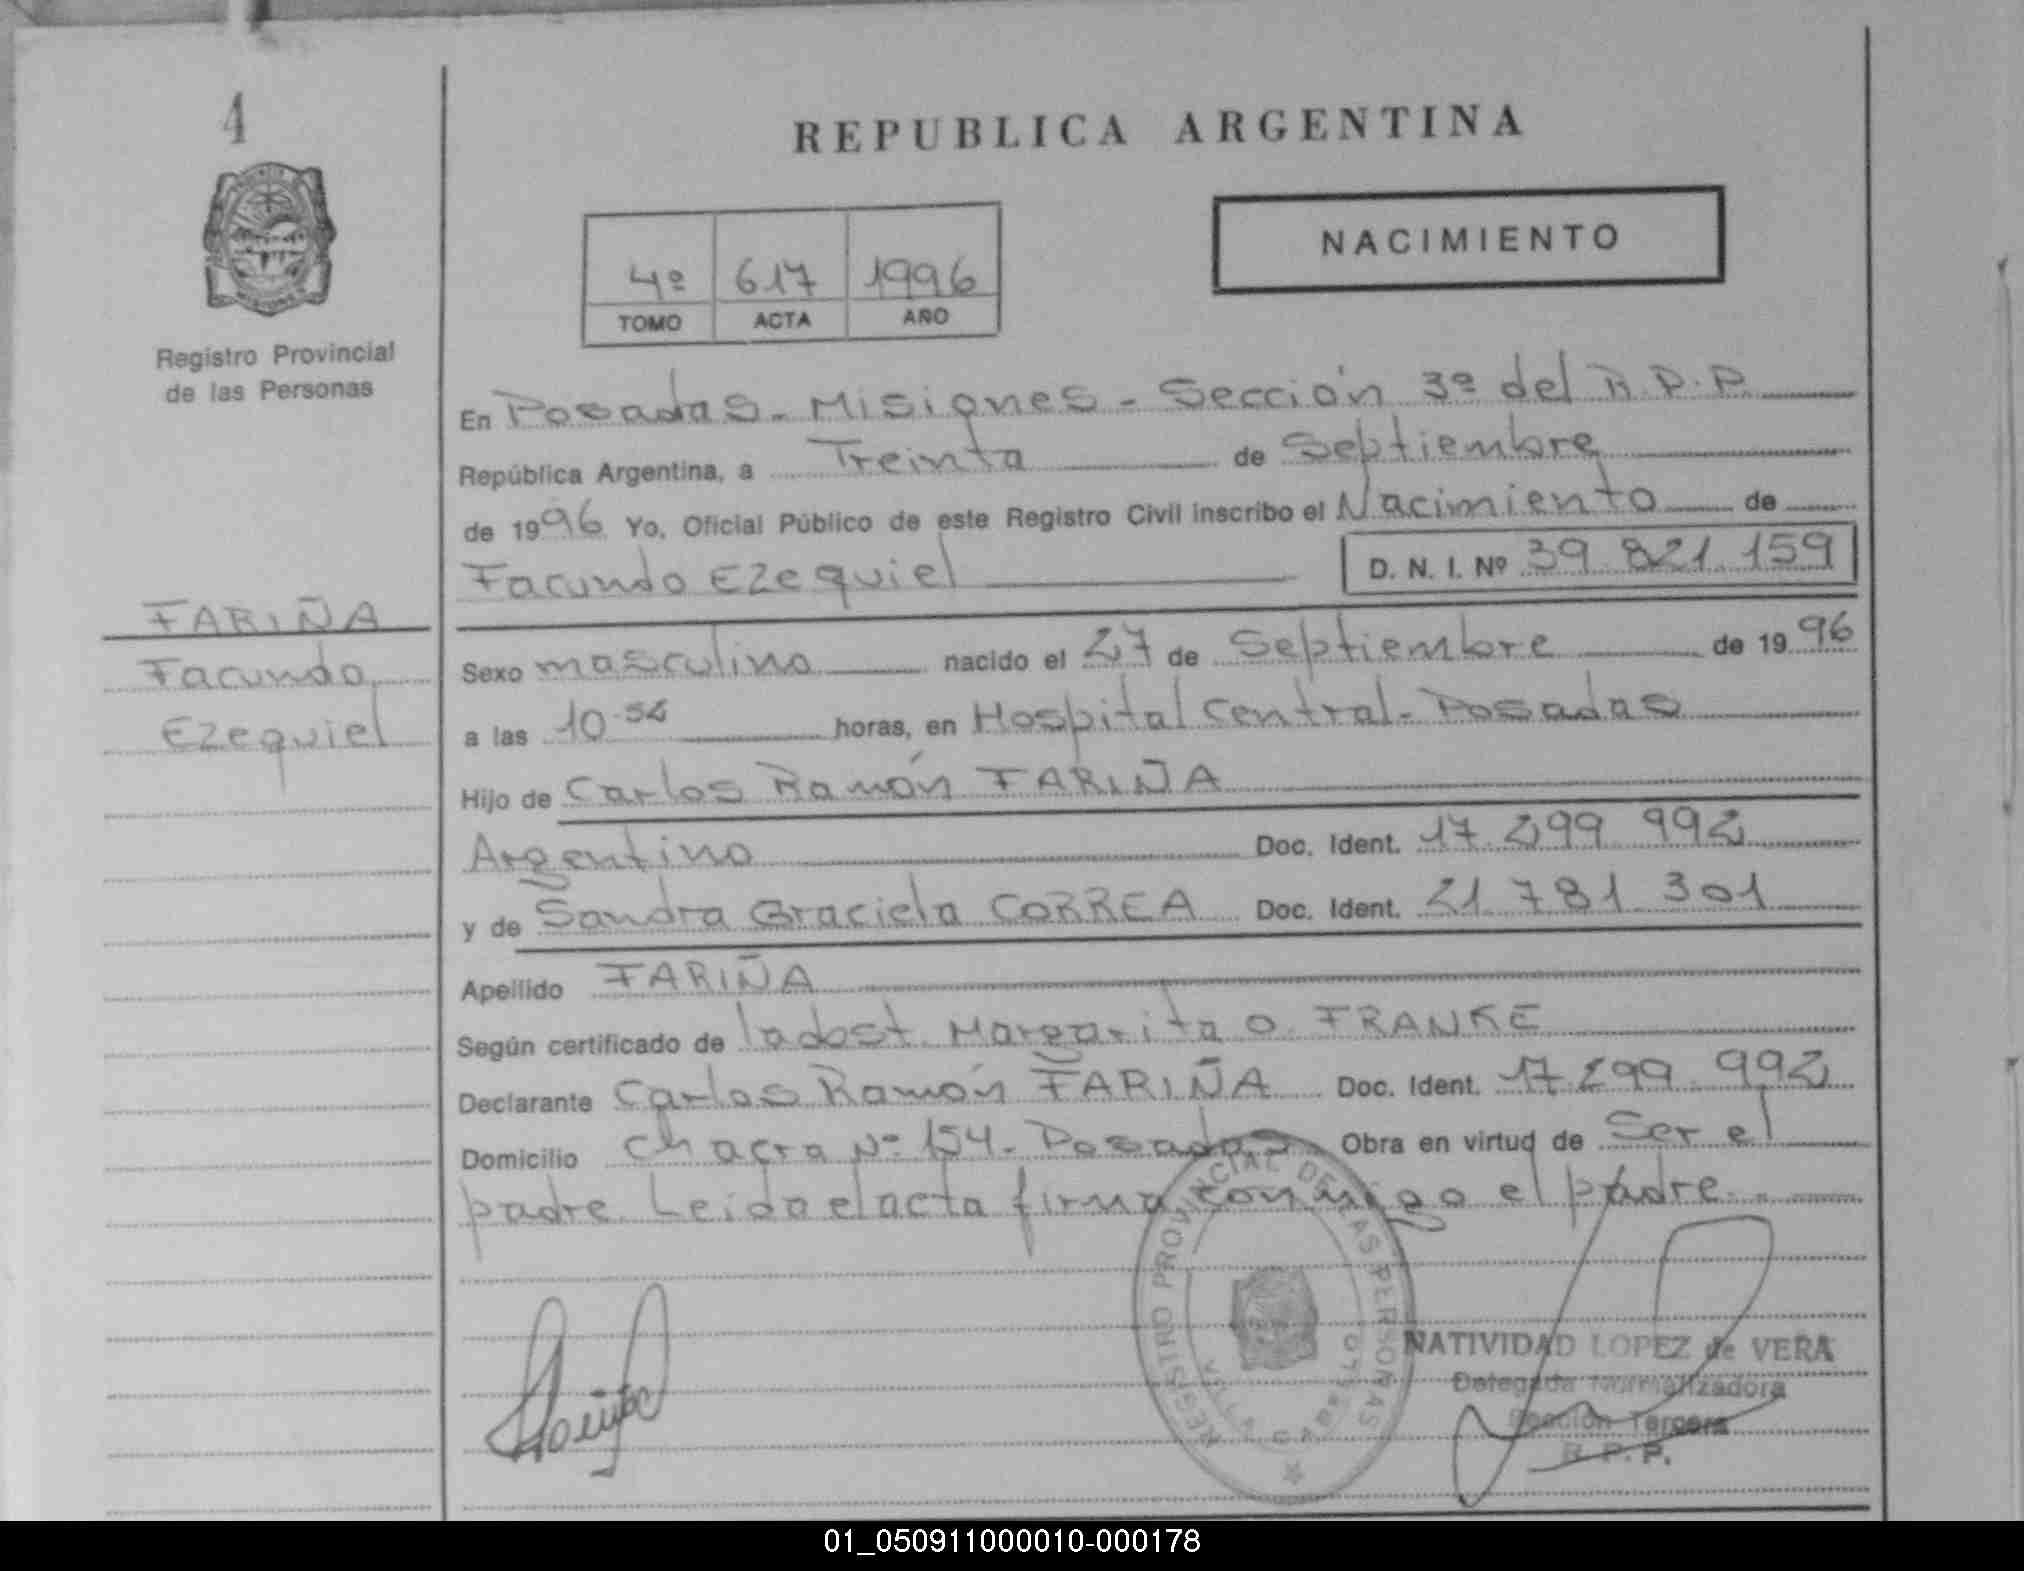 4
REPUBLICA ARGENTINA
NACIMIENTO
4º 617 1996
TOMO ACTA AÑO
Registro Provincial
de las Personas
En Posadas - Misiones - Sección 3º del R.P.P.
República Argentina, a Treinta de Septiembre
de 1996 Yo, Oficial Público de este Registro Civil inscribo el Nacimiento de
Facundo Ezequiel D. N. I. Nº 39 821 159
FARIÑA
Facundo
Ezequiel
Sexo masculino nacido el 27 de Septiembre de 1996
a las 10.54 horas, en Hospital Central - Posadas
Hijo de Carlos Ramón FARIÑA
Argentino Doc. Ident. 17 299 992
y de Sandra Graciela CORREA Doc. Ident. 21 781 301
Apellido FARIÑA
Según certificado de la obst. Margarita O. FRANKE
Declarante Carlos Ramón FARIÑA Doc. Ident. 17 299 992
Domicilio Chacra Nº 154 - Posadas Obra en virtud de Ser el
padre. Leida el acta firma conmigo el padre.
REGISTRO PROVINCIAL DE LAS PERSONAS
NATIVIDAD LOPEZ de VERA
Delegada Normalizadora
Sección Tercera
R. P. P.
01_050911000010-000178